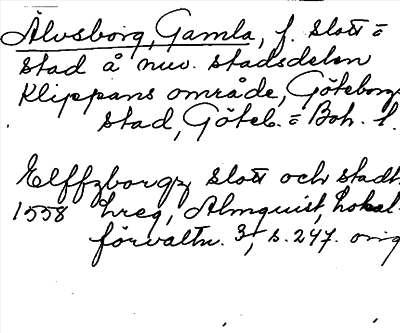 Älvsborg, Gamla, f. slott =
stad å nuv. stadsdelen
Klippans område, Göteborgs
stad, Göteb. = Boh. l.
Elffzborgz slott och stadt
1558 hreg, Almquist, Lokal-
förvaltn. 3, s. 247. orig